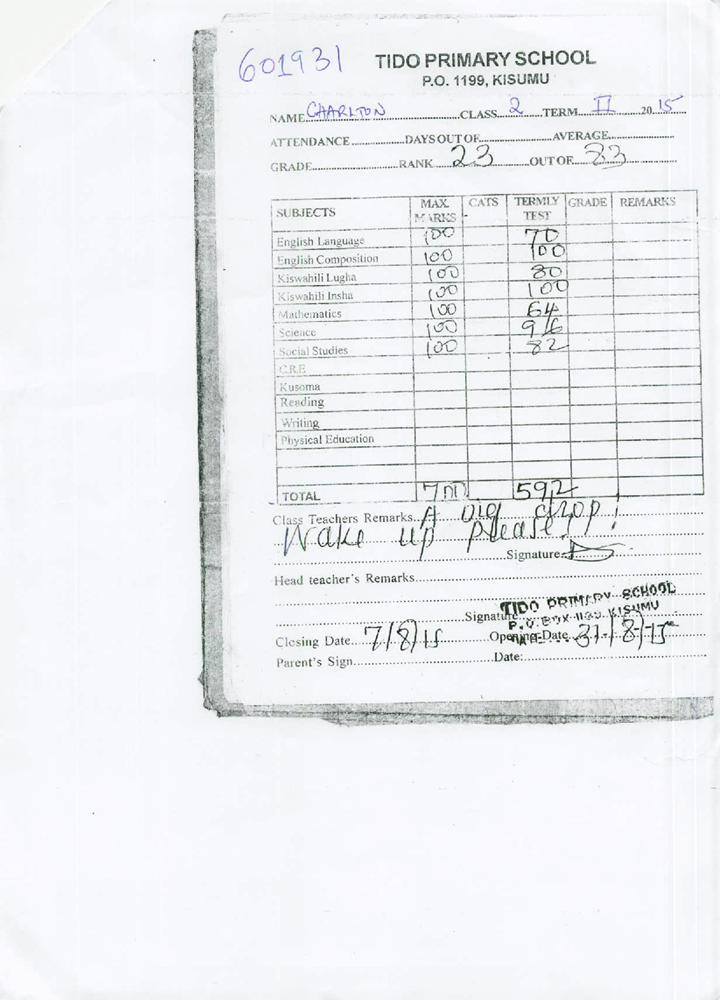 601931
TIDO PRIMARY SCHOOL
P.O. 1199, KISUMU
NAME CHARLTON CLASS 2 TERM II 2015
ATTENDANCE DAYS OUT OF AVERAGE
GRADE RANK 23 OUT OF 83
SUBJECTS MAX. MARKS CATS TERMLY TEST GRADE REMARKS
English Language 100 70
English Composition 100 100
Kiswahili Lugha 100 80
Kiswahili Insha 100 100
Mathematics 100 64
Science 100 96
Social Studies 100 82
C.R.E
Kusoma
Reading
Writing
Physical Education
TOTAL 700 592
Class Teachers Remarks A big drop!
Wake up please!
Signature:
Head teacher's Remarks
Signature
TIDO PRIMARY SCHOOL
P.O. BOX 1199, KISUMU
Closing Date 7/8/15 Opening Date 31/8/15
Parent's Sign Date: